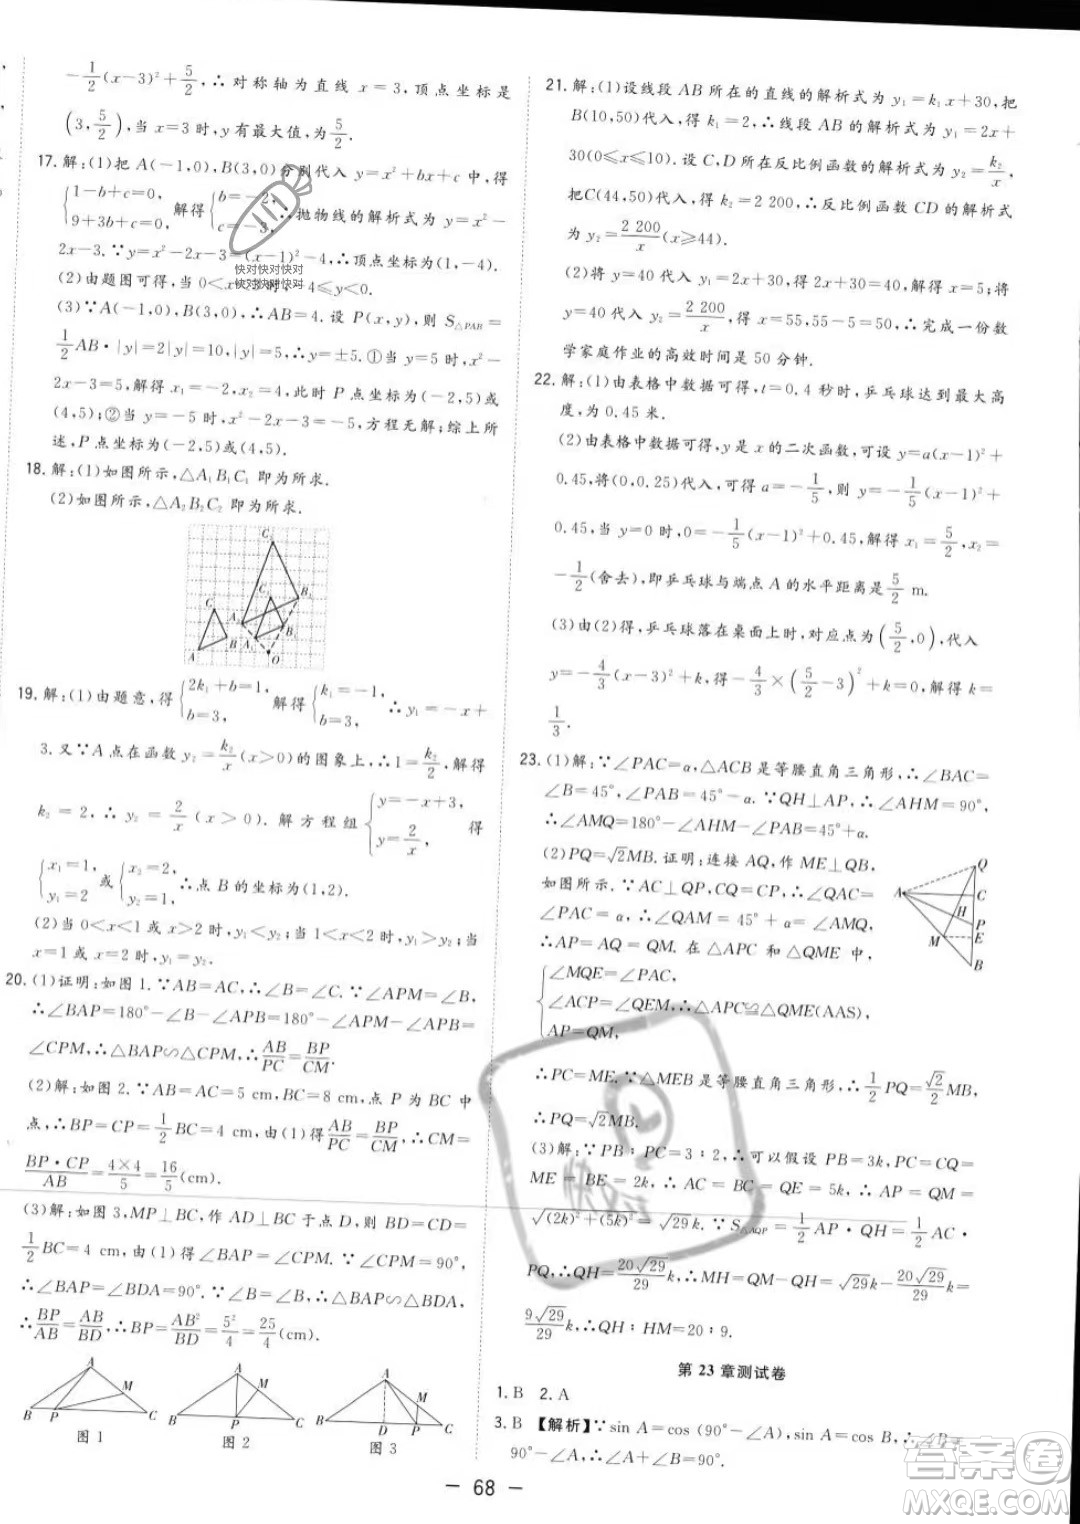 -1/2(x-3)²+5/2,∴对称轴为直线 x=3,顶点坐标是
(3,5/2),当 x=3 时,y 有最大值,为5/2.
17.解:(1)把 A(-1,0),B(3,0)分别代入 y=x²+bx+c 中,得
{1-b+c=0, 9+3b+c=0, 解得{b=-2, c=-3, ∴抛物线的解析式为 y=x²-
2x-3.∵y=x²-2x-3=(x-1)²-4,∴顶点坐标为(1,-4).
(2)由题图可得,当 0<x<3时,-4≤y<0.
(3)∵A(-1,0),B(3,0),∴AB=4.设 P(x,y),则 S△PAB=
1/2AB·|y|=2|y|=10,|y|=5,∴y=±5.①当 y=5 时,x²-
2x-3=5,解得 x₁=-2,x₂=4,此时 P 点坐标为(-2,5)或
(4,5);②当 y=-5 时,x²-2x-3=-5,方程无解;综上所
述,P 点坐标为(-2,5)或(4,5).
18.解:(1)如图所示,△A₁B₁C₁ 即为所求.
(2)如图所示,△A₂B₂C₂ 即为所求.
C₂
C C₁ B₂
A₂ B₁
A B A₁ O
19.解:(1)由题意,得{2k₁+b=1, b=3, 解得{k₁=-1, b=3, ∴y₁=-x+
3.又∵A 点在函数 y₂=k₂/x(x>0)的图象上,∴1=k₂/2,解得
k₂=2,∴y₂=2/x(x>0).解方程组{y=-x+3, y=2/x, 得
{x₁=1, y₁=2 或{x₂=2, y₂=1, ∴点 B 的坐标为(1,2).
(2)当 0<x<1或 x>2 时,y₁<y₂;当 1<x<2 时,y₁>y₂;当
x=1 或 x=2 时,y₁=y₂.
20.(1)证明:如图 1.∵AB=AC,∴∠B=∠C.∵∠APM=∠B,
∴∠BAP=180°-∠APB-∠B=180°-∠APM-∠APB=
∠CPM,∴△BAP∽△CPM,∴AB/PC=BP/CM.
(2)解:如图 2.∵AB=AC=5 cm,BC=8 cm,点 P 为 BC 中
点,∴BP=CP=1/2BC=4 cm,由(1)得AB/PC=BP/CM,∴CM=
BP·CP/AB=4×4/5=16/5(cm).
(3)解:如图 3,MP⊥BC,作 AD⊥BC 于点 D,则 BD=CD=
1/2BC=4 cm,由(1)得∠BAP=∠CPM.∵∠CPM=90°,
∴∠BAP=∠BDA=90°.∵∠B=∠B,∴△BAP∽△BDA,
∴BP/AB=AB/BD,∴BP=AB²/BD=5²/4=25/4(cm).
A M B P C 图 1
A M B P C 图 2
A M B D P C 图 3
21.解:(1)设线段 AB 所在的直线的解析式为 y₁=k₁x+30,把
B(10,50)代入,得 k₁=2,∴线段 AB 的解析式为 y₁=2x+
30(0≤x≤10).设 C,D 所在反比例函数的解析式为 y₂=k₂/x,
把C(44,50)代入,得 k₂=2 200,∴反比例函数 CD 的解析式
为 y₂=2 200/x(x≥44).
(2)将 y=40 代入 y₁=2x+30,得 2x+30=40,解得 x=5,将
y=40 代入 y₂=2 200/x,得 x=55,55-5=50,∴完成一份数
学家庭作业的高效时间是 50 分钟.
22.解:(1)由表格中数据可得,t=0.4 秒时,乒乓球达到最大高
度,为 0.45 米.
(2)由表格中数据可得,y 是 x 的二次函数,可设 y=a(x-1)²+
0.45,将(0,0.25)代入,可得 a=-1/5,则 y=-1/5(x-1)²+
0.45,当 y=0 时,0=-1/5(x-1)²+0.45,解得 x₁=5/2,x₂=
-1/2(舍去),即乒乓球与端点 A 的水平距离是5/2 m.
(3)由(2)得,乒乓球落在桌面上时,对应点为(5/2,0),代入
y=-4/3(x-3)²+k,得-4/3×(5/2-3)²+k=0,解得 k=
1/3.
23.(1)解:∵∠PAC=α,△ACB 是等腰直角三角形,∴∠BAC=
∠B=45°,∠PAB=45°-α.∵QH⊥AP,∴∠AHM=90°,
∴∠AMQ=180°-∠AHM-∠PAB=45°+α.
(2)PQ=√2MB.证明:连接 AQ,作 ME⊥QB,
如图所示.∵AC⊥QP,CQ=CP,∴∠QAC=
∠PAC=α,∴∠QAM=45°+α=∠AMQ,
∴AP=AQ=QM.在△APC 和△QME 中,
{∠MQE=∠PAC, ∠ACP=∠QEM, AP=QM, ∴△APC≌△QME(AAS),
Q A C H P M E B
∴PC=ME.∵△MEB 是等腰直角三角形,∴1/2PQ=√2/2MB,
∴PQ=√2MB.
(3)解:∵BP∶PC=3∶2,∴可以假设 BP=3k,PC=CQ=
ME=BE=2k,∴AC=BC=QE=5k,∴AP=QM=
√(2k)²+(5k)²=√29k.∵S△AQP=1/2AP·QH=1/2AC·
PQ,∴QH=20√29/29k,∴MH=QM-QH=√29k-20√29/29k=
9√29/29k,∴QH∶HM=20∶9.
第 23 章测试卷
1.B 2.A
3.B 【解析】∵sin A=cos (90°-∠A),sin A=cos B,∴∠B=
90°-∠A,∴∠A+∠B=90°.
- 68 -
快对快对快对
快对快对快对
快对
答案圈
MXQE.COM